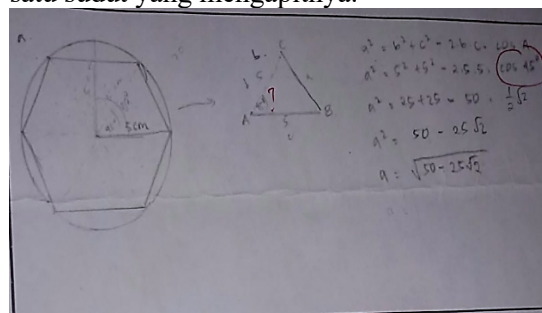 satu sudut yang mengapitnya.
a.
5cm
b.
C
5
?
A
5
B
a² = b² + c² - 2·b·c· cos A
a² = 5² + 5² - 2·5·5· cos 45°
a² = 25 + 25 - 50 · ½√2
a² = 50 - 25√2
a = √50 - 25√2